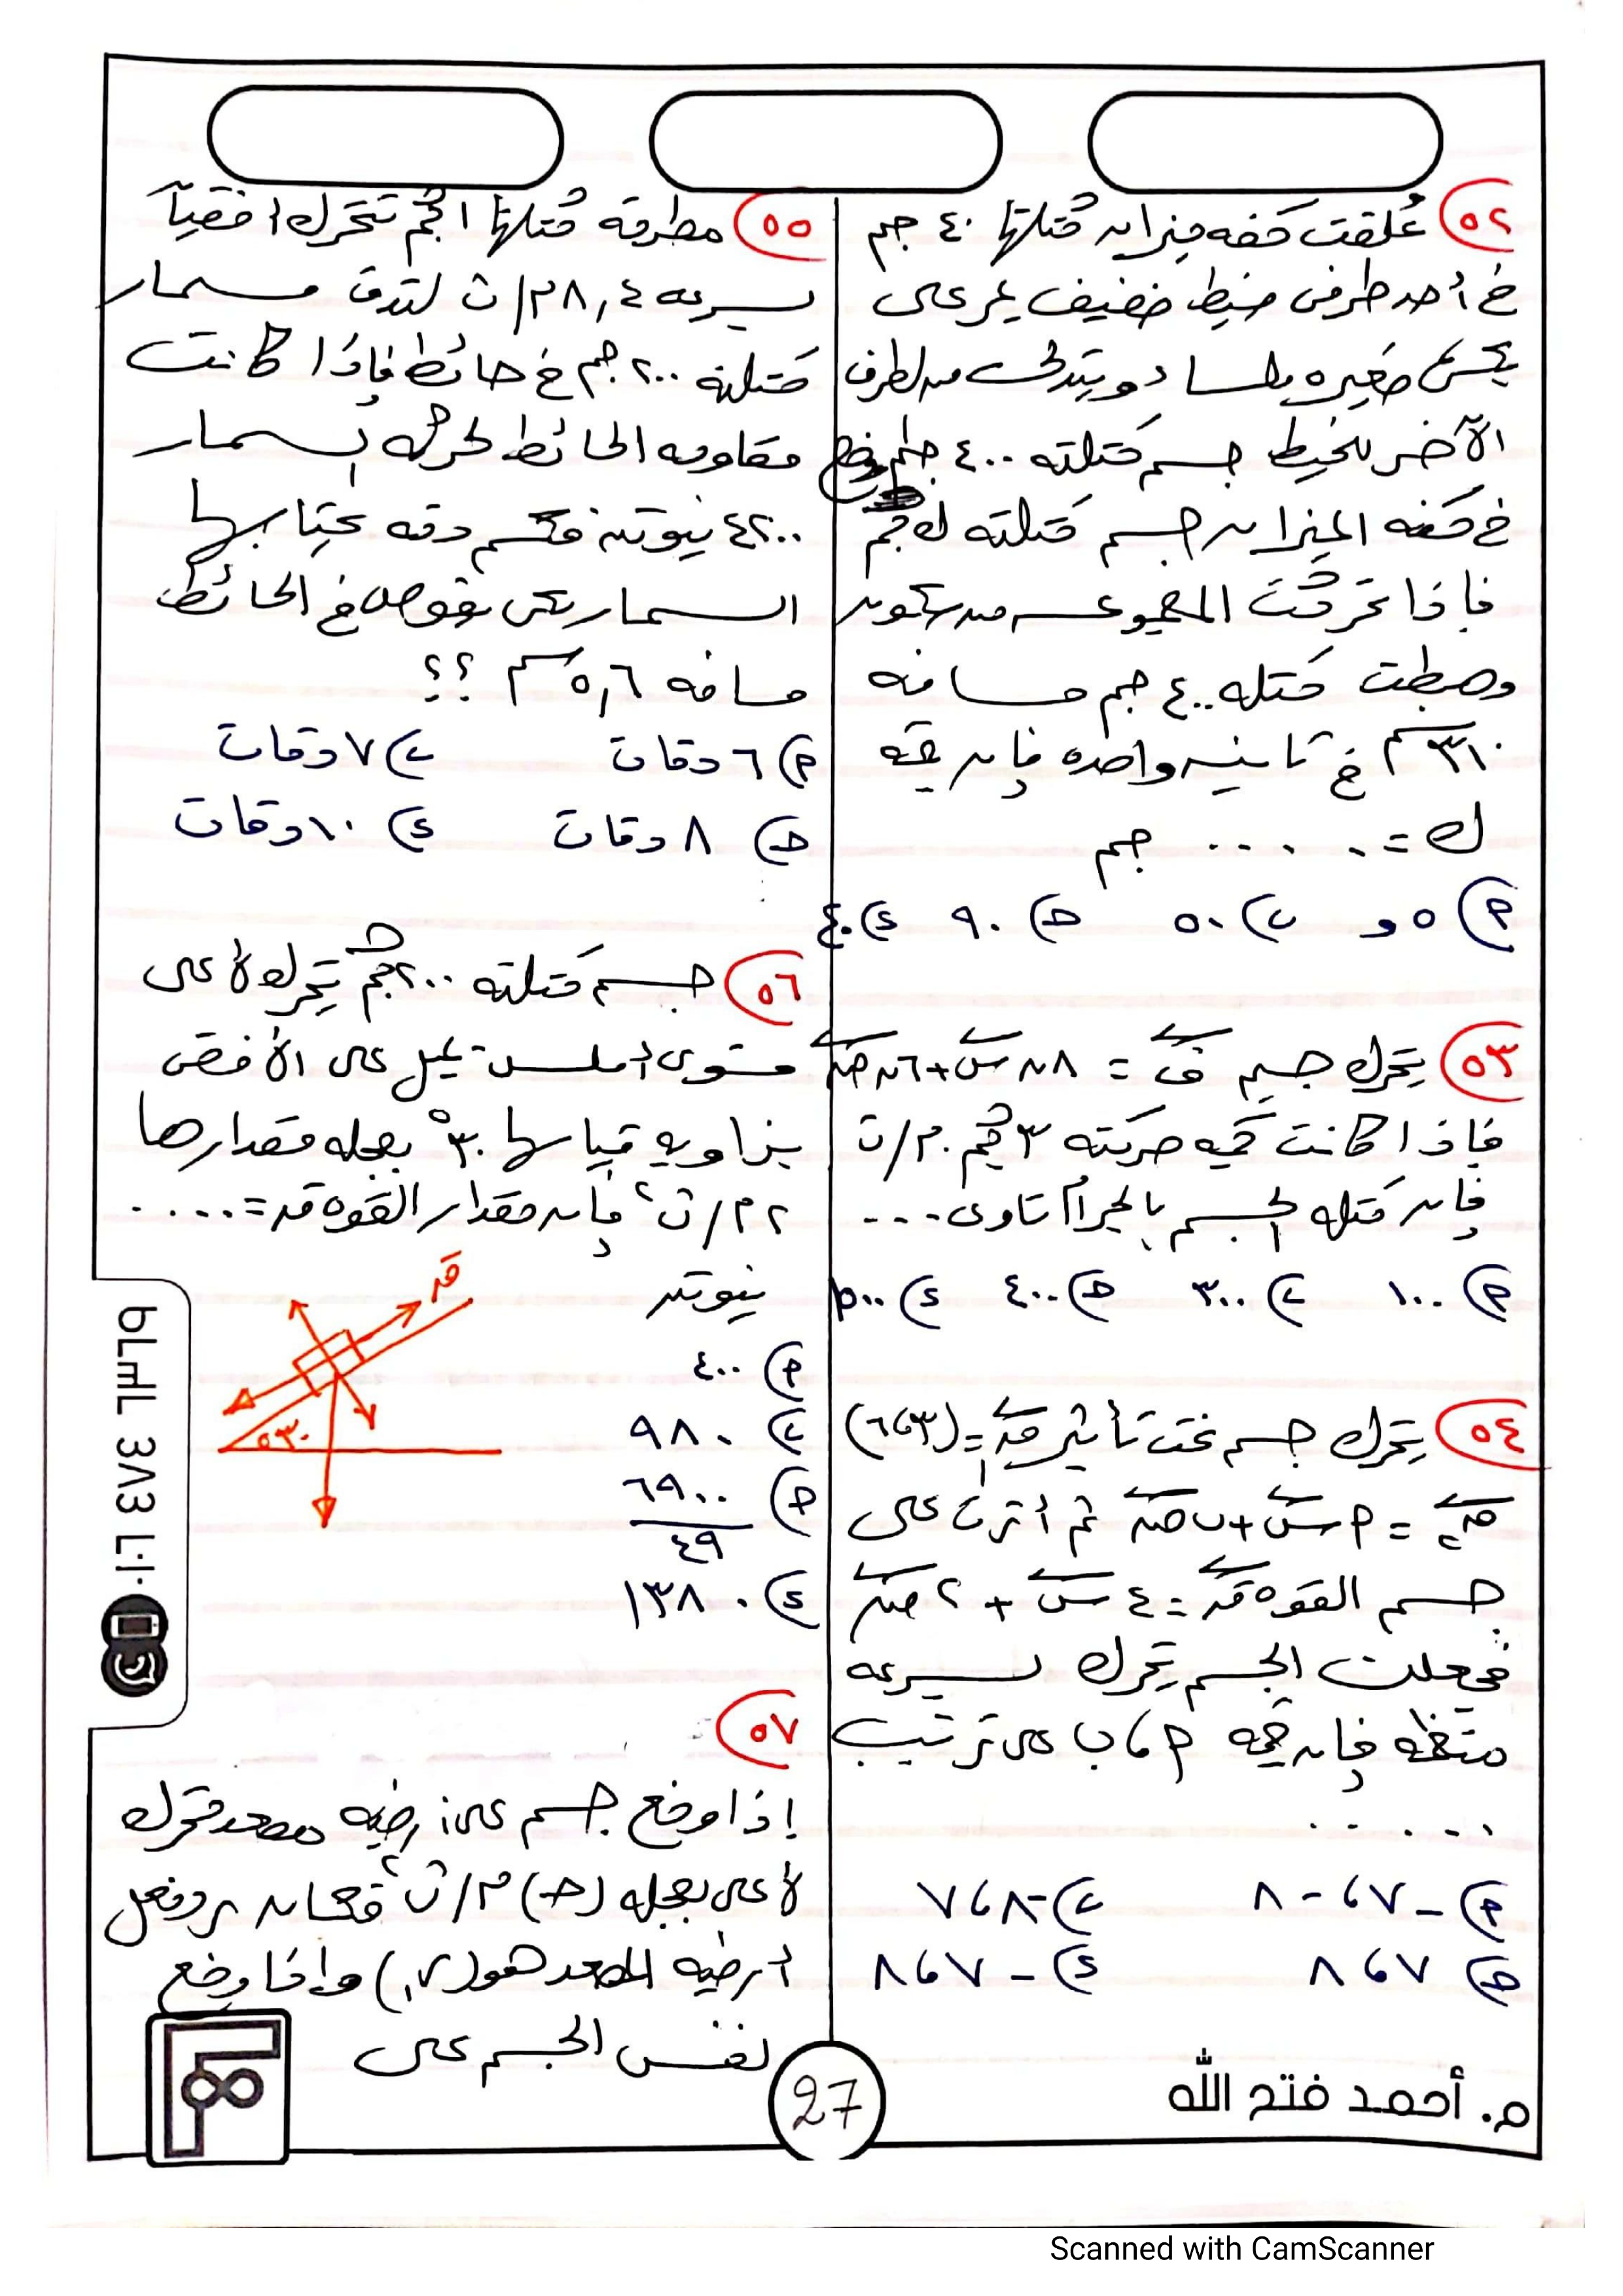 ٥٢ عُلقت كفه ميزان كُتلتها ٤٠ جم
في أحد طرفى خيط خفيف يمر على
بكرة صغيره ملساء ويتدلى من الطرف
الآخر للخيط جسم كتلته ٤٠٠ جم وضع
في كفه الميزان جسم كتلته ك جم
فإذا تحركت المجموعه من سكون
وهبطت كتله ٤٠٠ جم مسافه
٣١٠ سم في ثانيه واحده فإن قيمه
ك = ..... جم
أ) ٥٠ ب) ٥٠ ج) ٩٠ د) ٤٠
٥٣ يتحرك جسم ف = ٨ن س + ٦ن ص
فإذا كانت كميه حركته ٣ كجم.م/ث
فإن كتله الجسم بالجرام تساوى ...
أ) ١٠٠ ب) ٣٠٠ ج) ٤٠٠ د) ٥٠٠
٥٤ يتحرك جسم تحت تأثير ق١ = (٣، ٦)
ق٢ = أ س + ب ص ثم أثرت على
جسم القوه ق = ٤ س + ٢ ص
فجعلت الجسم يتحرك بسرعه
منتظمه فإن قيمه أ، ب على ترتيب
......
أ) -٧، -٨ ب) -٨، ٧
ج) ٧، ٨ د) -٧، ٨
٥٥ مطرقه كُتلتها ١ كجم تتحرك افقياً
بسرعه ٨,٤ م/ث لتدق مسمار
كتلته ٢٠٠ جم في حائط فإذا كانت
مقاومه الحائط لحركه المسمار
٤٢٠٠ نيوتن فكم دقه يحتاجها
المسمار لكى يغوص في الحائط
مسافه ٥,٦ سم ؟؟
أ) ٦ دقات ب) ٧ دقات
ج) ٨ دقات د) ١٠ دقات
٥٦ جسم كتلته ٢٠٠ كجم يتحرك لأعلى
مستوى أملس يميل على الأفقى
بزاويه قياسها ٣٠° بعجله مقدارها
٢ م/ث٢ فإن مقدار القوه ق = .....
نيوتن
ق
٣٠°
أ) ٤٠٠
ب) ٩٨٠
ج) ٦٩٠٠
٤٩
د) ١٣٨٠
٥٧
إذا وضع جسم على أرضيه مصعد متحرك
لأعلى بعجله (ج) م/ث٢ فكان رد فعل
أرضيه المصعد هو (ر١) وإذا وضع
نفس الجسم على
م. أحمد فتح الله
27
Scanned with CamScanner